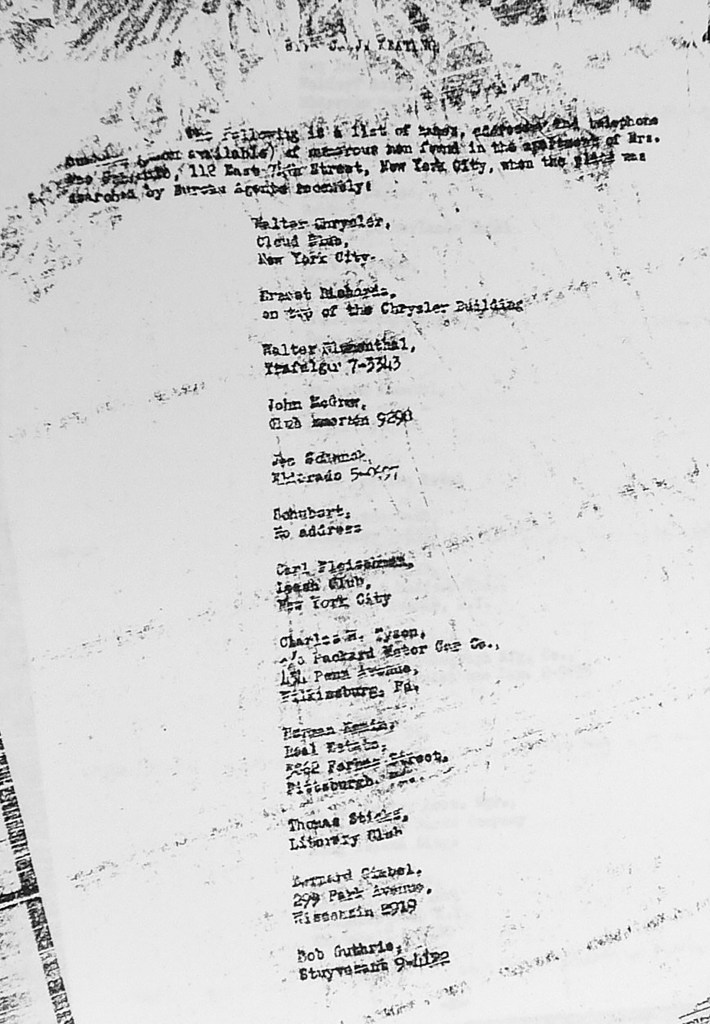 J. J. KEATING
The following is a list of names, addresses and telephone
(when available) of numerous men found in the apartment of Mrs.
Mae 112 East Street, New York City, when the place was
searched by Bureau Agents recently:
Walter Chrysler,
Cloud Club,
New York City.
Ernest Richards,
on top of the Chrysler Building
Walter Blumenthal,
Trafalgur 7-3343
John McGrew,
Club 9290
Joe
Eldorado
Schubert,
No address
Carl Fleischman,
Leash Club,
New York City
Charles H. Tyson,
c/o Packard Motor Car Co.,
Penn Avenue,
Wilkinsburg, Pa.
Herman
Real Estate,
Street,
Pittsburgh,
Thomas
Literary Club
Bernard Gimbel,
299 Park Avenue,
Wisconsin 2919
Bob Guthrie,
Stuyvesant